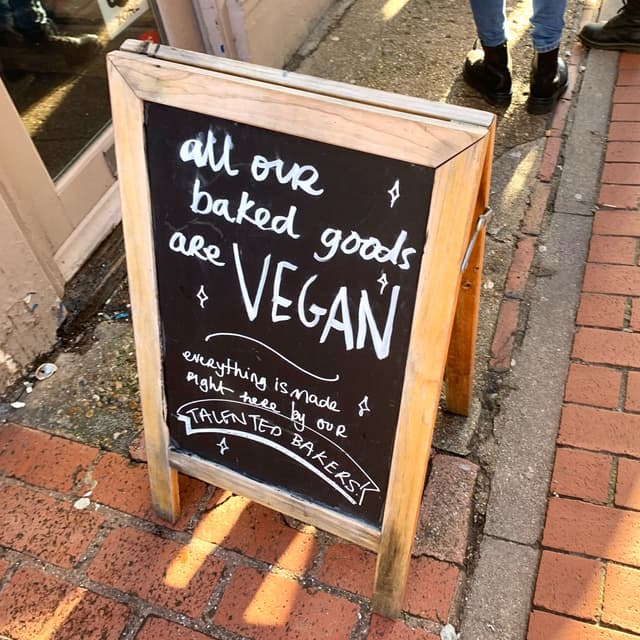 all our
baked goods
are VEGAN
everything is made
right here by our
TALENTED BAKERS!